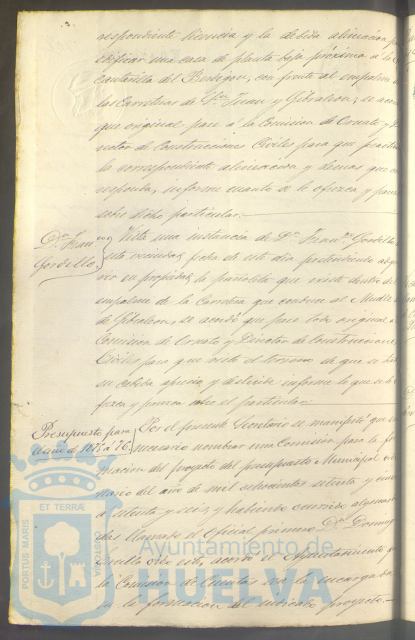 respondiente licencia y la debida alineacion p
edificar una casa de planta baja próxima á la
con frente al empalme de
las Carreteras de Sn Juan y Gibraleon, se acor
que original pase á la Comision de Ornato y D
rector de Construcciones Civiles para que practi
la correspondiente alineacion y demas que co
rresponda, informe cuanto se le ofrezca y parez
sobre dicho particular.
Dn Fran
Gordillo
Vista una instancia de Dn Franco Gordillo
esta vecindad, fecha de este dia pretendiendo adqui
rir en propiedad, la parcelita que existe dentro del
empalme de la Carretera que conduce al Muelle
de Gibraleon, se acordó que pase todo original á
Comision de Ornato y Director de Construcciones
Civiles para que visto el terreno de que se
informe lo que se le
frezca y parezca sobre el particular.
Presupuesto para
el año de 1875 á 76.
Por el presente Secretario se manifestó que es
necesario nombrar una Comision para la for
macion del proyecto del presupuesto Municipal
del año de mil ochocientos setenta y cinco
á setenta y seis, y habiendo
llamado el Oficial primero Dn
acordó el Ayuntamiento que
la Comision de Cuentas
la formacion del indicado proyecto.
PORTUS MARIS ET TERRAE CUSTODIA
Ayuntamiento de
HUELVA